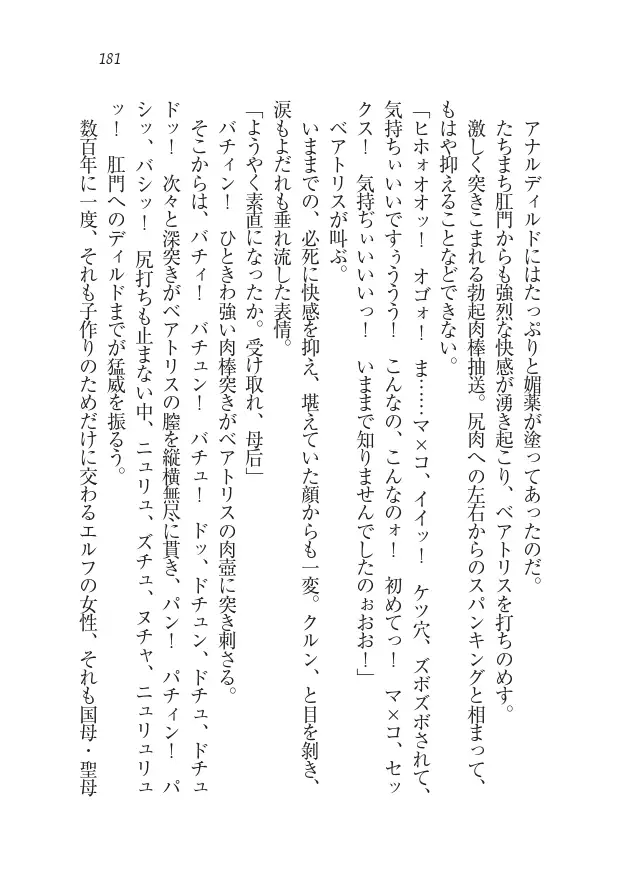 181
アナルディルドにはたっぷりと媚薬が塗ってあったのだ。
たちまち肛門からも強烈な快感が湧き起こり、ベアトリスを打ちのめす。
激しく突きこまれる勃起肉棒抽送。尻肉への左右からのスパンキングと相まって、
もはや抑えることなどできない。
「ヒホォオオッ！　オゴォ！　ま……マ×コ、イイッ！　ケツ穴、ズボズボされて、
気持ちぃいいですぅううう！　こんなの、こんなのォ！　初めてっ！　マ×コ、セッ
クス！　気持ぢぃいいいっ！　いままで知りませんでしたのぉおお！」
ベアトリスが叫ぶ。
いままでの、必死に快感を抑え、堪えていた顔からも一変。クルン、と目を剝き、
涙もよだれも垂れ流した表情。
「ようやく素直になったか。受け取れ、母后」
バチィン！　ひときわ強い肉棒突きがベアトリスの肉壺に突き刺さる。
そこからは、バチィ！　バチュン！　バチュ！　ドッ、ドチュン、ドチュ、ドチュ
ドッ！　次々と深突きがベアトリスの膣を縦横無尽に貫き、パン！　パチィン！　パ
シッ、バシッ！　尻打ちも止まない中、ニュリュ、ズチュ、ヌチャ、ニュリュリュ
ッ！　肛門へのディルドまでが猛威を振るう。
数百年に一度、それも子作りのためだけに交わるエルフの女性、それも国母・聖母